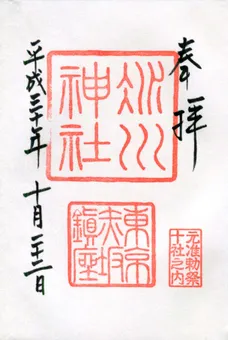 奉拝
氷川神社
東京赤坂鎮座
元准勅祭
十社之内
平成三十年十月二十二日